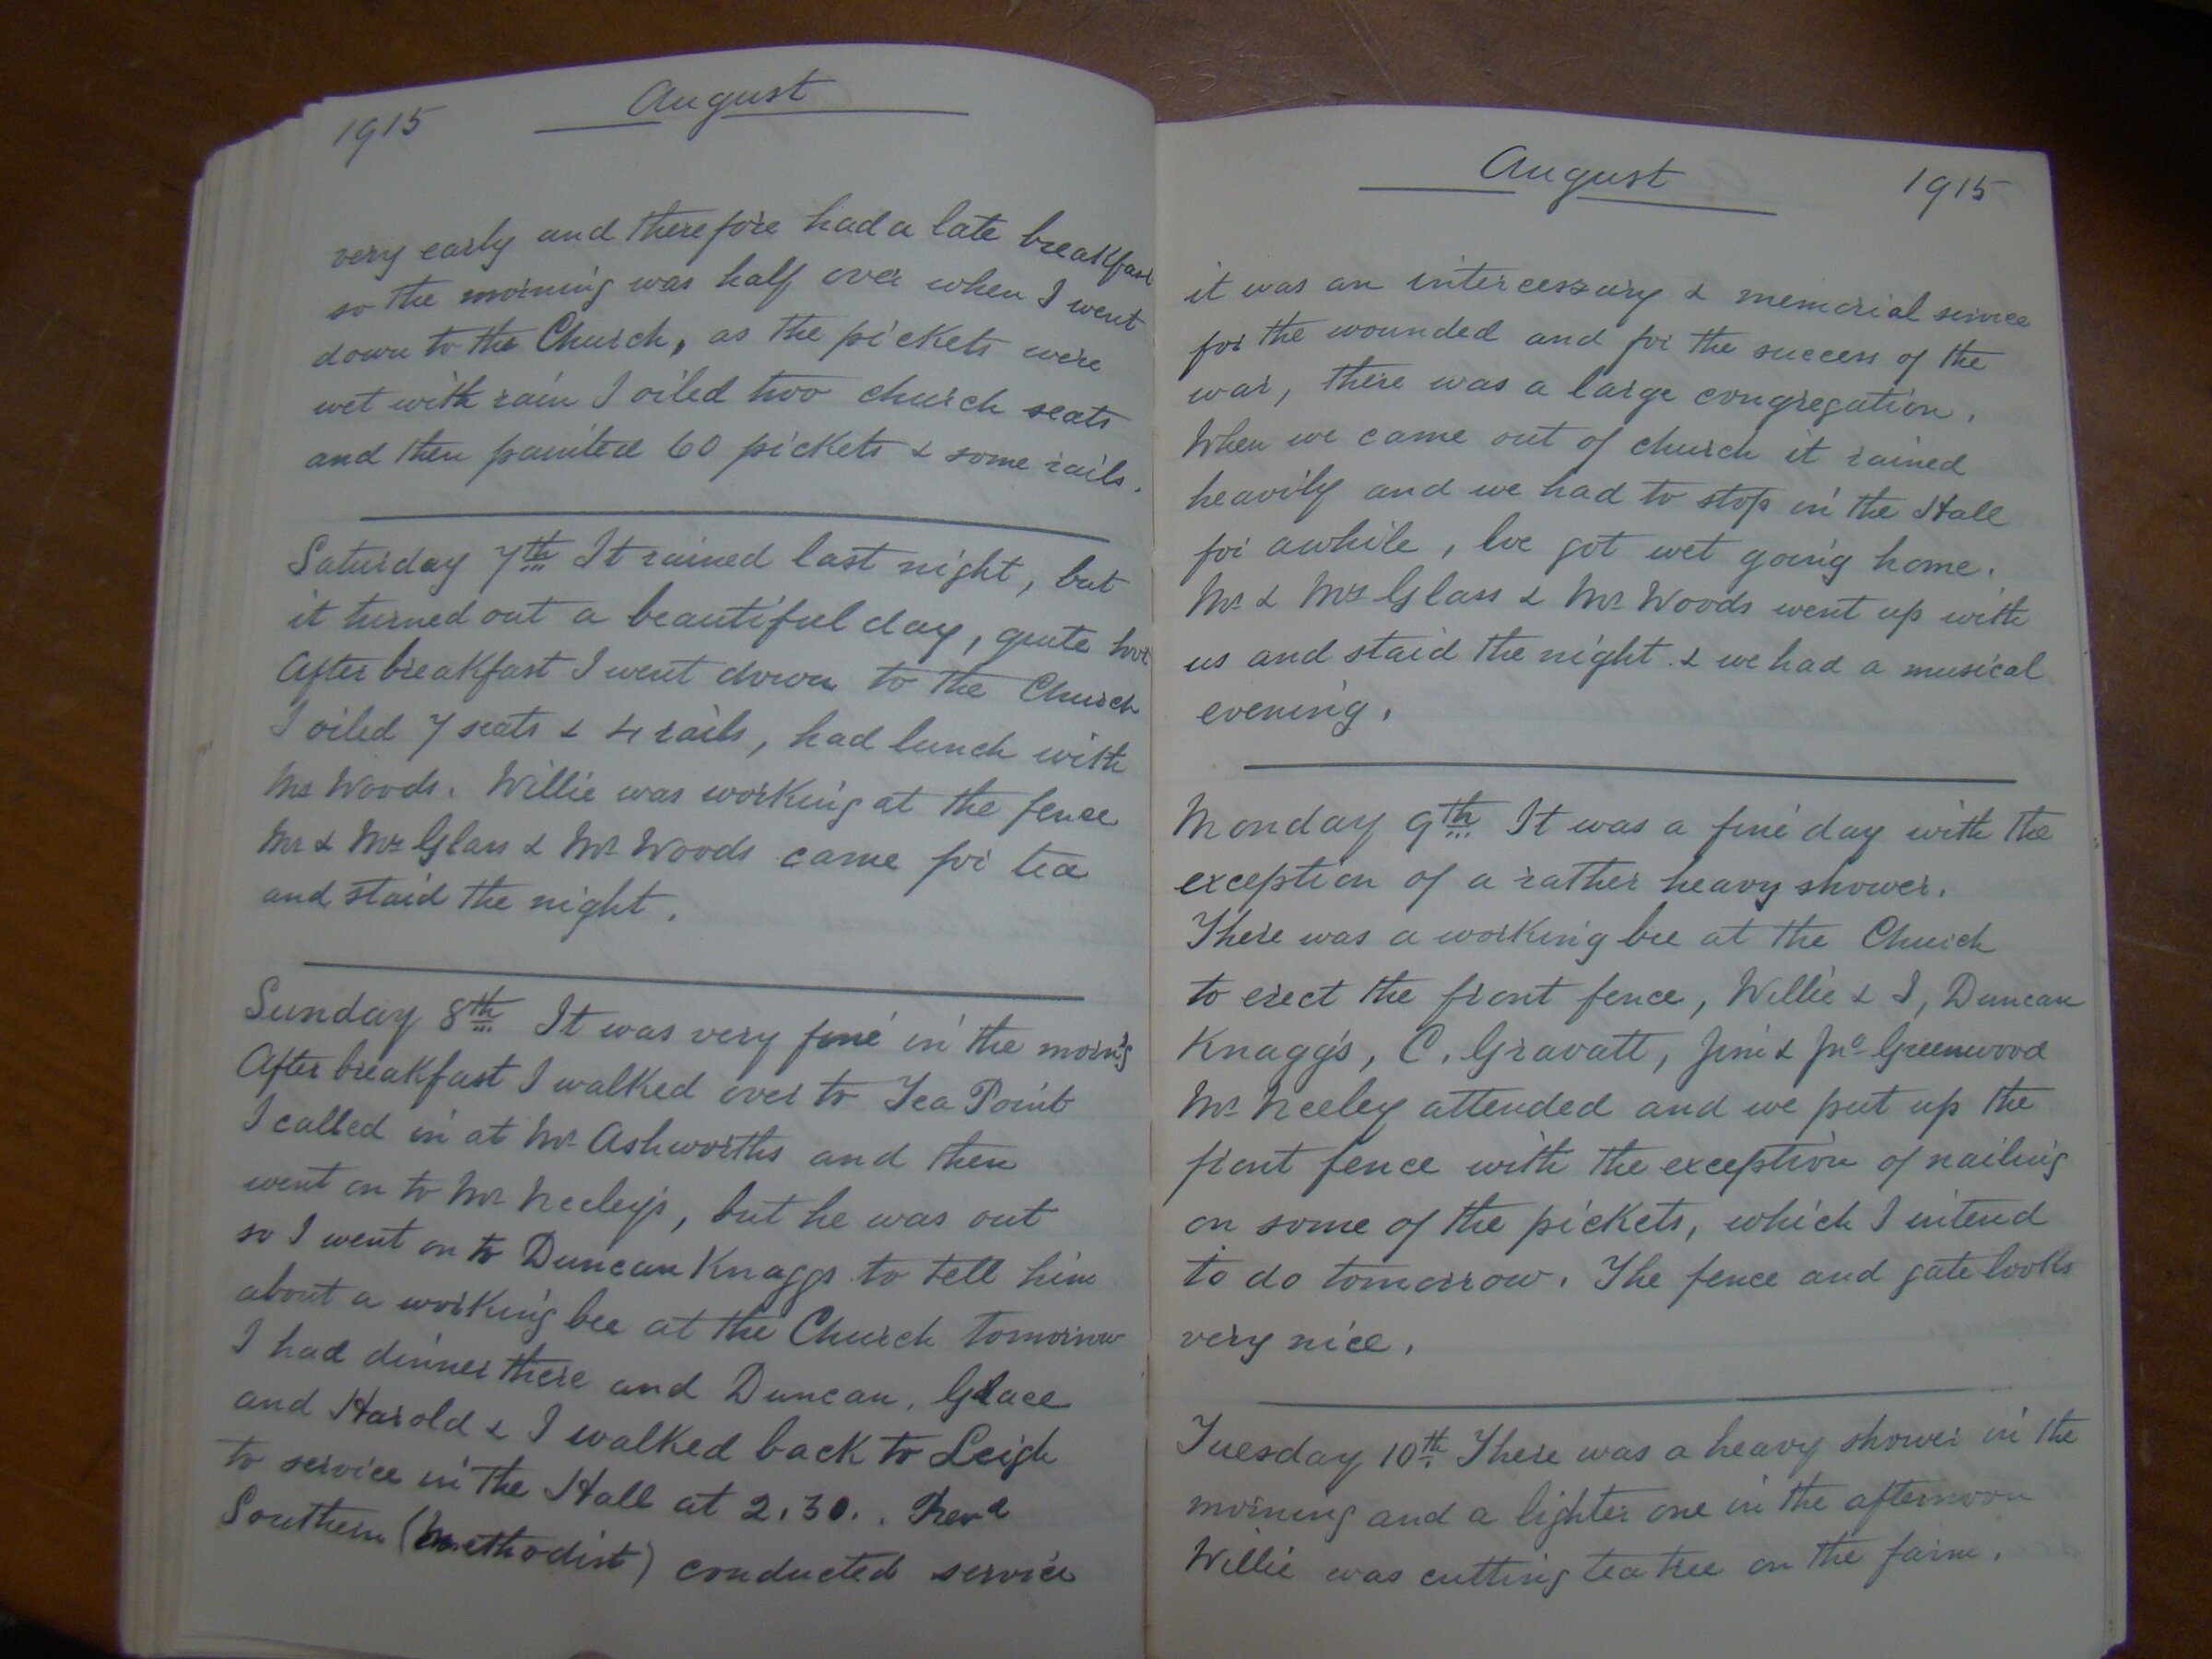 1915 August
very early and therefore had a late breakfast
so the morning was half over when I went
down to the Church, as the pickets were
wet with rain I oiled two church seats
and then painted 60 pickets & some rails.
Saturday 7th It rained last night, but
it turned out a beautiful day, quite hot
After breakfast I went down to the Church
I oiled 7 seats & 4 rails, had lunch with
Mr Woods. Willie was working at the fence
Mr & Mrs Glass & Mr Woods came for tea
and staid the night.
Sunday 8th It was very fine in the morn'g
After breakfast I walked over to Tea Point
I called in at Mr Ashworths and then
went on to Mr Neeley's, but he was out
so I went on to Duncan Knaggs to tell him
about a working bee at the Church tomorrow
I had dinner there and Duncan, Grace
and Harold & I walked back to Leigh
to service in the Hall at 2.30.. Revd
Southern (Methodist) conducted service
August 1915
it was an intercessary & memorial service
for the wounded and for the success of the
war, there was a large congregation.
When we came out of church it rained
heavily and we had to stop in the Hall
for awhile, we got wet going home.
Mr & Mrs Glass & Mr Woods went up with
us and staid the night. & we had a musical
evening.
Monday 9th It was a fine day with the
exception of a rather heavy shower.
There was a working bee at the Church
to erect the front fence, Willie & I, Duncan
Knaggs, C. Gravatt, Jim & Jno Greenwood
Mr Neeley attended and we put up the
front fence with the exception of nailing
on some of the pickets, which I intend
to do tomorrow. The fence and gate looks
very nice.
Tuesday 10th There was a heavy shower in the
morning and a lighter one in the afternoon
Willie was cutting tea tree on the farm.